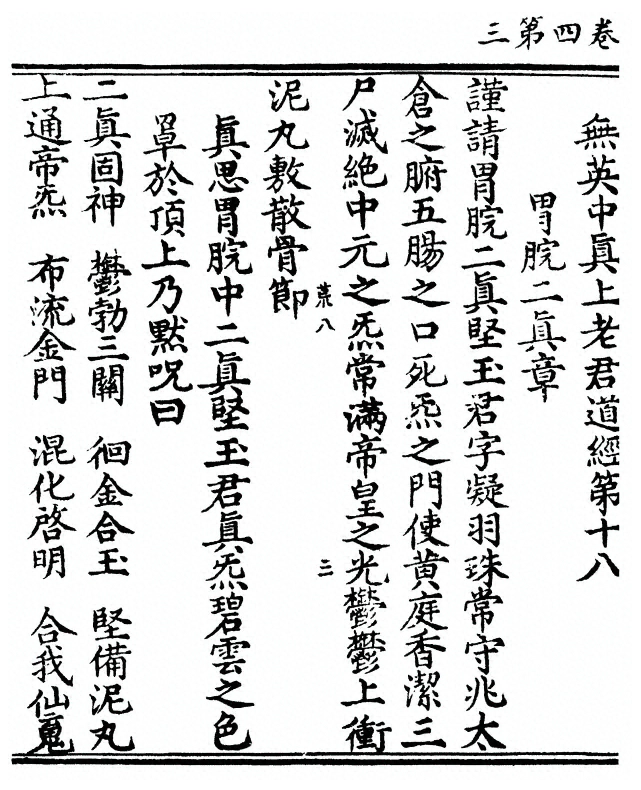 卷四第三
無英中眞上老君道經第十八
胃脘二眞章
謹請胃脘二眞堅玉君字凝羽珠常守兆太
倉之腑五腸之口死炁之門使黄庭香潔三
尸滅絶中元之炁常滿帝皇之光鬱鬱上衝
泥丸敷散骨節
菜八
三
眞思胃脘中二眞堅玉君眞炁碧雲之色
罩於頂上乃黙呪曰
二眞固神 鬱勃三關 徊金合玉 堅備泥丸
上通帝炁 布流金門 混化啓明 合我仙䰟